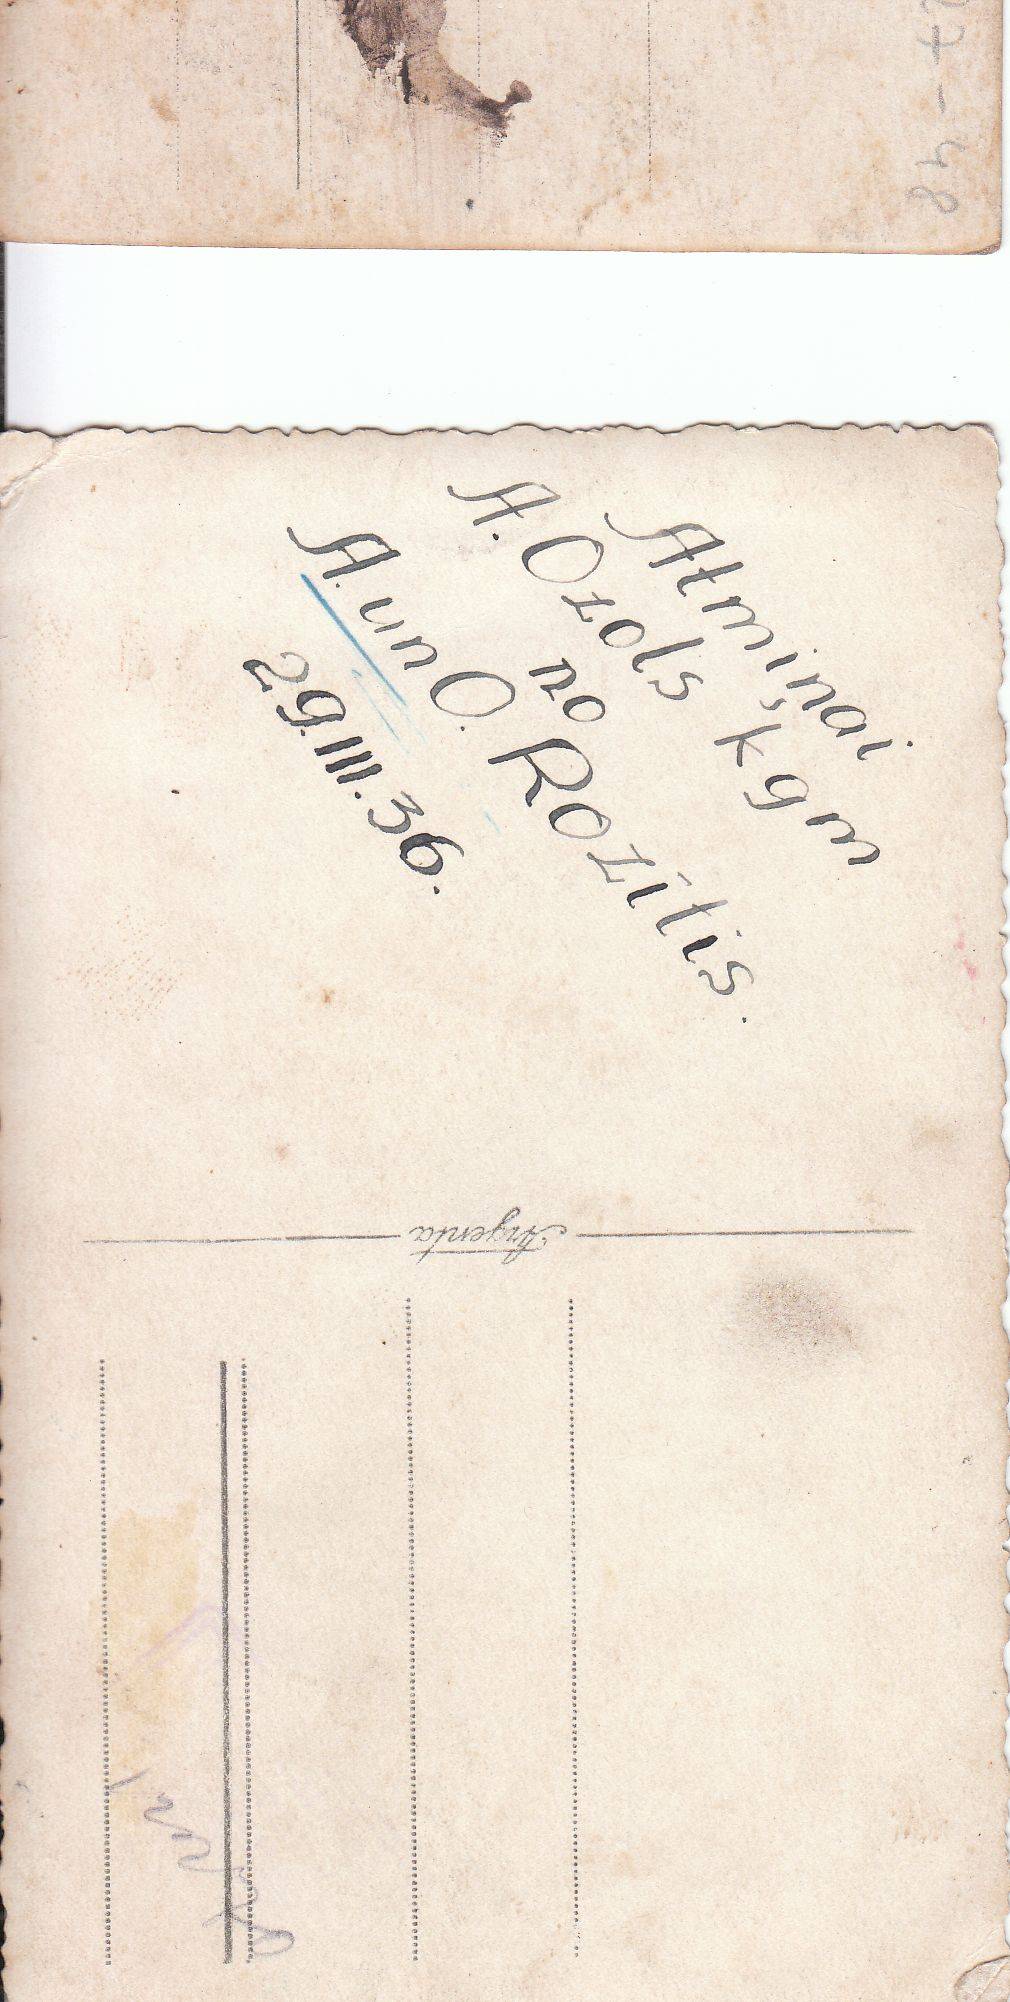 Atmiņai
A. Ozols kgm
no
A. un O. Rozītis.
29.III.36.
Argenta